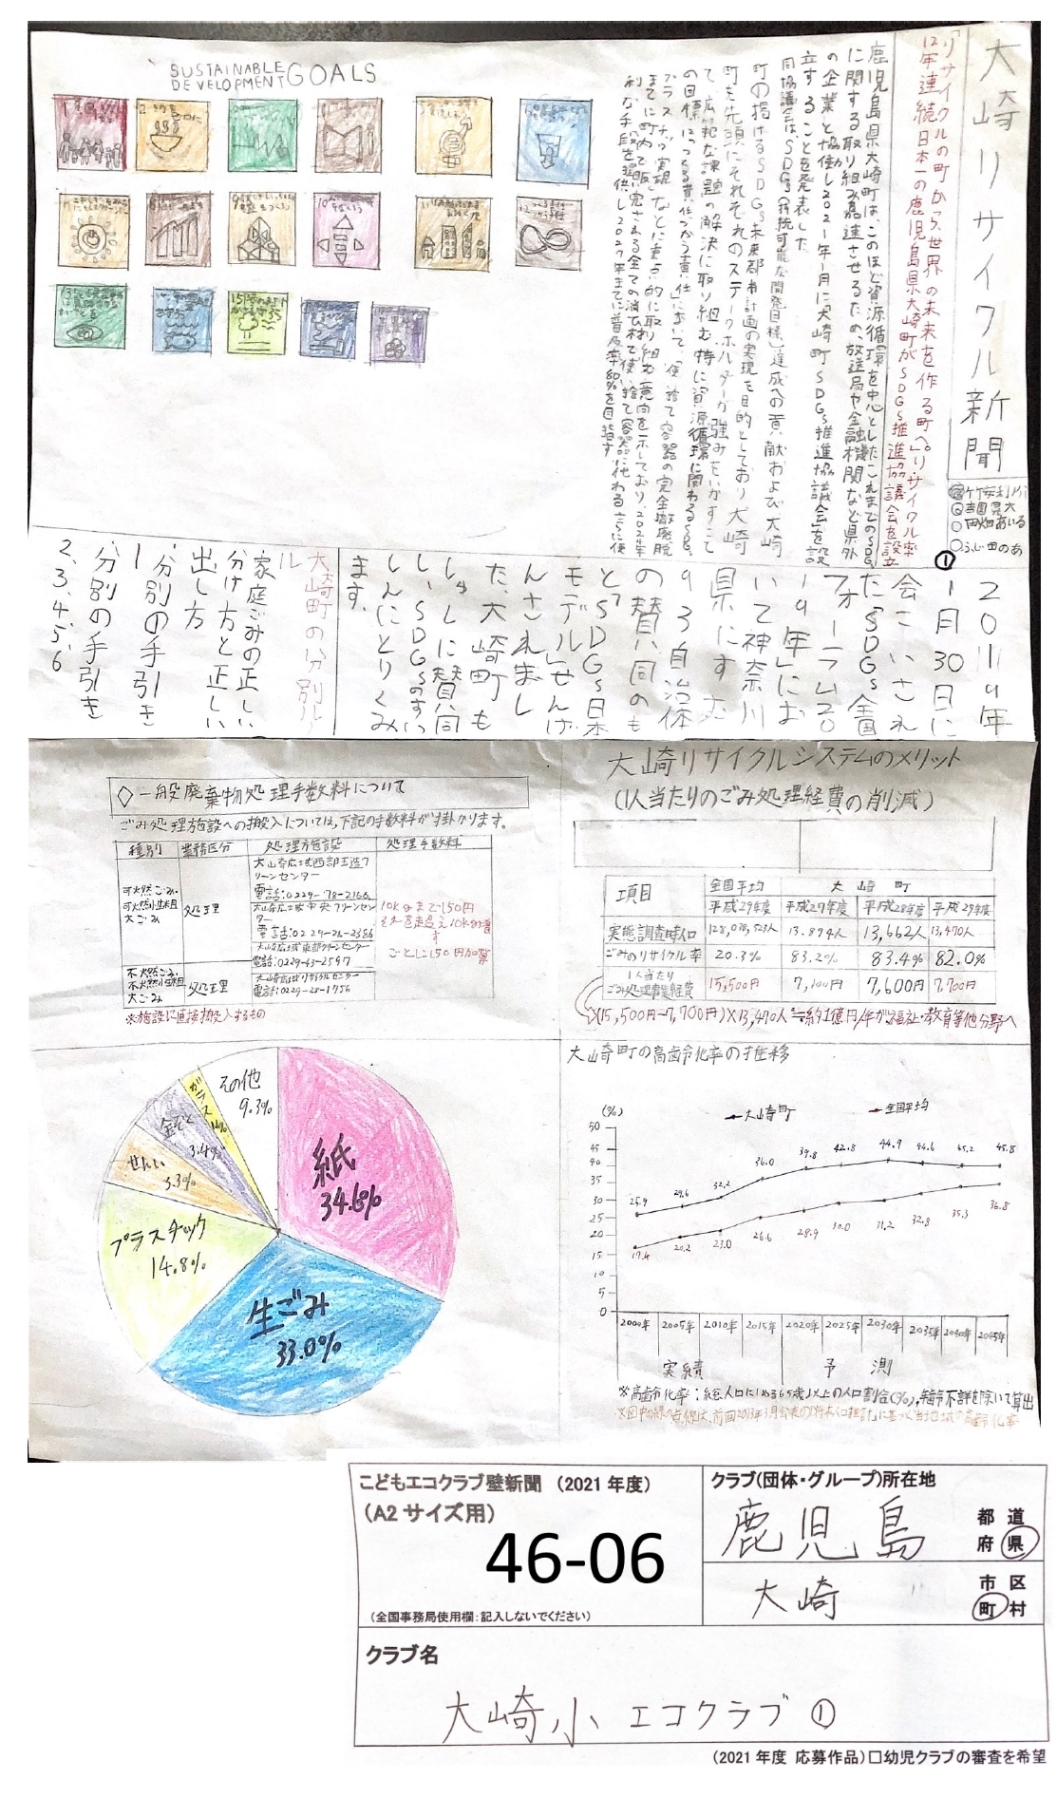 大崎リサイクル新聞
「リサイクルの町から、世界の未来を作る町へ」リサイクル率
12年連続日本一の鹿児島県大崎町がSDGs推進協議会を設立
鹿児島県大崎町は、このほど資源循環を中心としたこれまでのSDGs
に関する取り組み加速させるため、放送局や金融機関など県外
の企業と協働し2021年1月に大崎町SDGs推進協議会を設
立することを発表した
同協議会は、SDGs(持続可能な開発目標)達成への貢献および大崎
町の掲げるSDGs未来都市計画の実現を目的としており大崎
町を先頭にそれぞれのステークホルダーが強みをいかすこと
の目標につくる責任つかう責任において、使い捨て容器の完全撤廃脱
利な手段を提供し2027年までに普及率80%を目指す
SUSTAINABLE
DEVELOPMENT GOALS
①
2019年
1月30日に
会こいされ
たSDGs全国
フォーラム20
19年」にお
いて神奈川
県にすむ
93自治体
の賛同のも
とSDGs日本
モデル」せんげ
んされまし
た、大崎町も
しゅしに賛同
し、SDGsのすい
しんにとりくみ
ます。
大崎町の分別ル
ール
家庭ごみの正しい
分け方と正しい
出し方
・分別の手引き
1
・分別の手引き
2.3.4.5.6
◇一般廃棄物処理手数料について
ごみ処理施設への搬入については、下記の手数料が掛かります。
種別 業務区分 処理施設 処理手数料
可燃ごみ
可燃小粗
大ごみ
処理
大崎広域西部玉造ク
リーンセンター
電話:0229-78-2166
大崎広域中央クリーンセン
ター
電話:0229-26-2386
大崎広域東部クリーンセンター
電話:0229-43-2597
10Kgまで150円
それを超え10K増
す
ごとに150円加算
不燃ごみ
不燃小粗
大ごみ
処理
大崎広域リサイクルセンター
電話:0229-28-1756
※施設に直接搬入するもの
大崎リサイクルシステムのメリット
(1人当たりのごみ処理経費の削減)
項目 全国平均 大崎町
平成29年度 平成27年度 平成28年度 平成29年度
実態調査時人口 13.894人 13,662人 13,470人
ごみのリサイクル率 20.3% 83.2% 83.4% 82.0%
1人当たり
ごみ処理事業経費 15,500円 7,100円 7,600円 7,700円
☆(15,500円-7,700円)×13,470人≒約1億円/年が福祉・教育等他分野へ
紙
34.6%
生ごみ
33.0%
プラスチック
14.8%
せんい
5.3%
金ぞく
3.4%
ガラス
その他
9.3%
大崎町の高齢化率の推移
(%)
大崎町 全国平均
50
45
40
35
30
25
20
15
10
5
0
25.9 29.6 32.2 36.0 39.8 42.8 44.9 44.6 45.2 45.8
17.4 20.2 23.0 26.6 28.9 30.0 31.2 32.8 35.3 36.8
2000年 2005年 2010年 2015年 2020年 2025年 2030年 2035年 2040年 2045年
実績 予測
※高齢化率:総人口にしめる65歳以上の人口割合(%)、年齢不詳を除いて算出
こどもエコクラブ壁新聞 (2021年度)
(A2サイズ用)
46-06
(全国事務局使用欄:記入しないでください)
クラブ(団体・グループ)所在地
鹿児島
都道
府県
大崎
市区
町村
クラブ名
大崎小エコクラブ①
(2021年度 応募作品)□幼児クラブの審査を希望